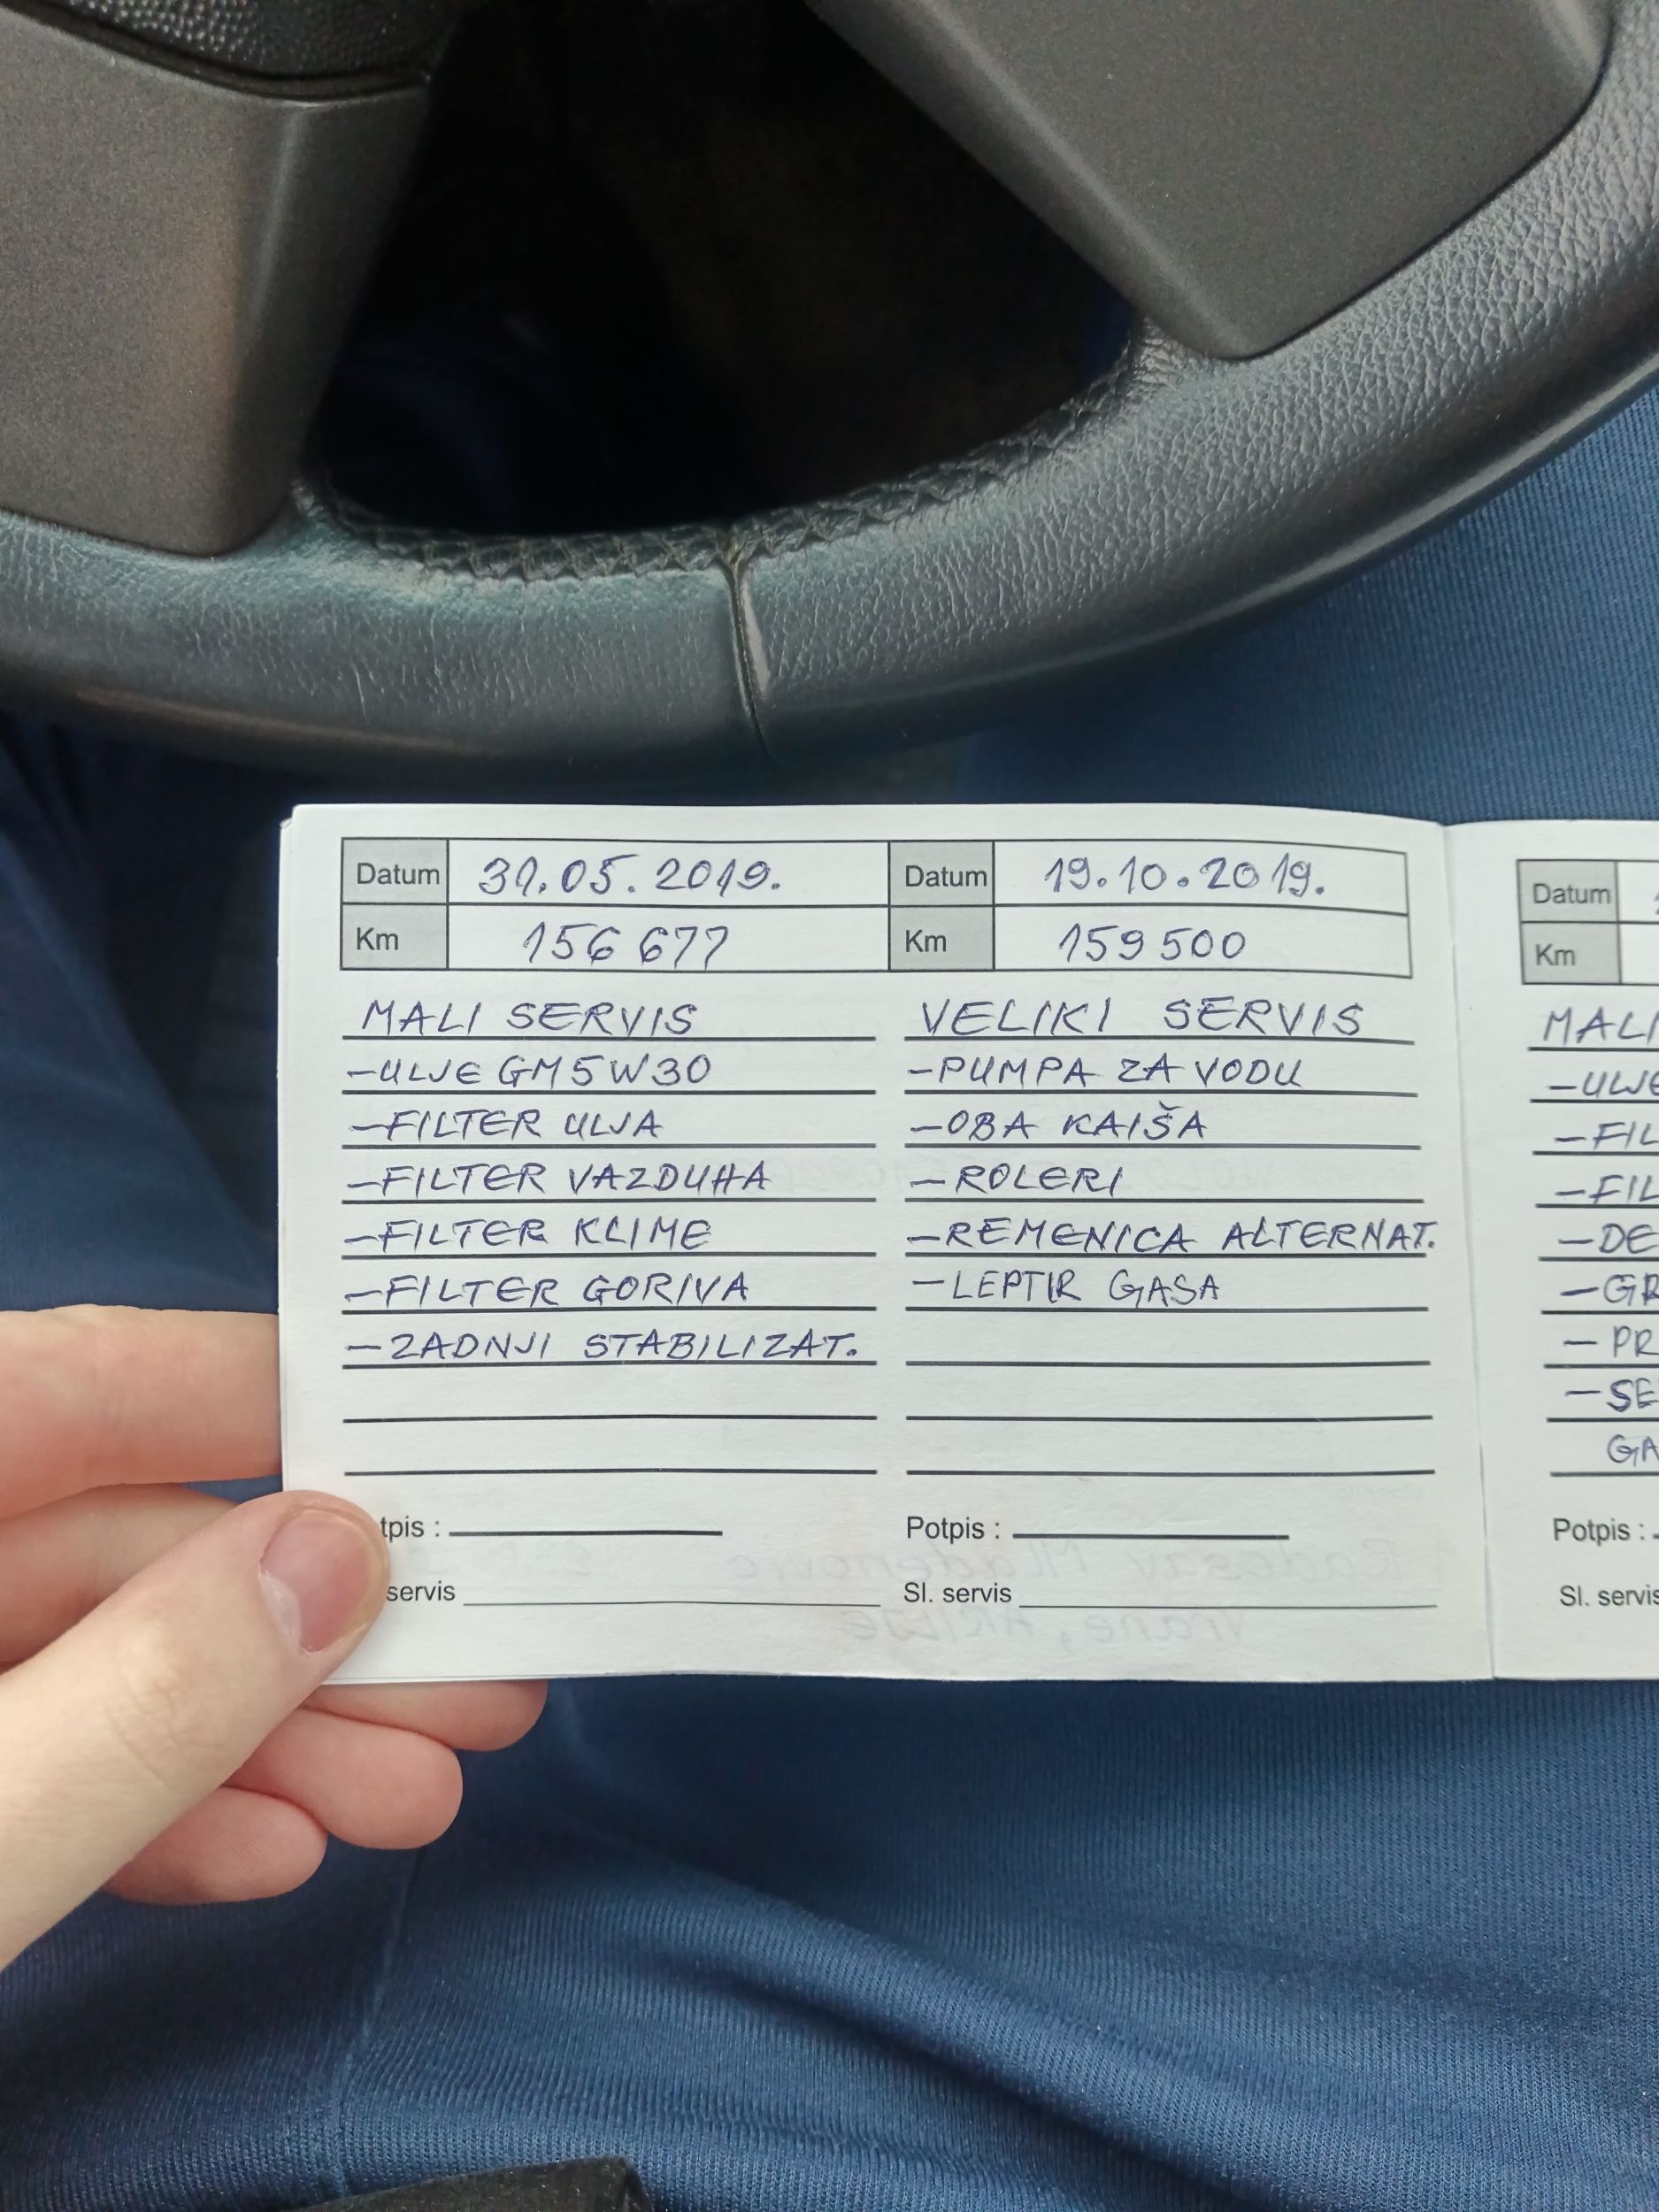 Datum 31.05.2019.
Km 156 677
MALI SERVIS
-ULJE GM 5W30
-FILTER ULJA
-FILTER VAZDUHA
-FILTER KLIME
-FILTER GORIVA
-ZADNJI STABILIZAT.
tpis :
servis
Datum 19.10.2019.
Km 159 500
VELIKI SERVIS
-PUMPA ZA VODU
-OBA KAIŠA
-ROLERI
-REMENICA ALTERNAT.
-LEPTIR GASA
Potpis :
Sl. servis
Datum
Km
MALI
-ULJE
-FIL
-FIL
-DE
-GR
-PR
-SE
GA
Potpis :
Sl. servis